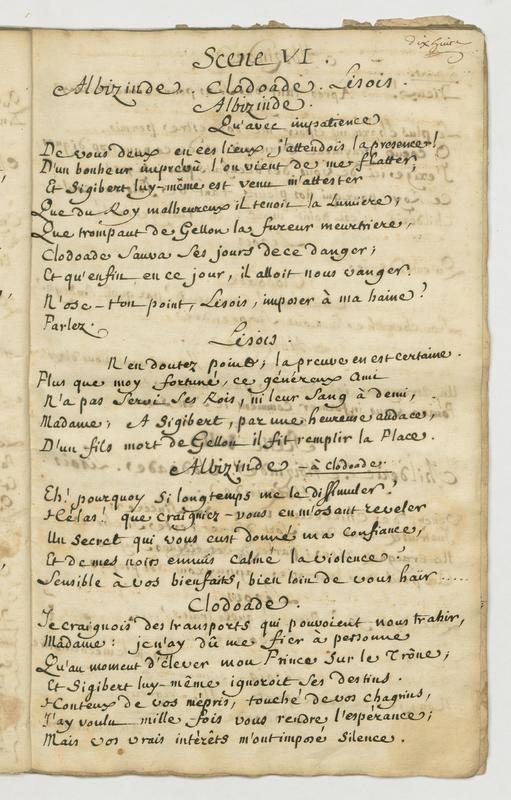 dix huit
Scene VI
Albizinde. Clodoade. Lisois.
Albizinde.
Qu'avec impatience
De vous deux en ces lieux j'attendois la presence!
D'un bonheur imprevû l'on vient de me flatter;
Et Sigibert luy-même est venu m'attester
Que du Roy malheureux il tenoit la Lumiere;
Que trompant de Gellon la fureur meurtriere,
Clodoade Sauva Ses jours de ce danger;
Et qu'enfin en ce jour, il alloit nous vanger.
N'ose-t'on point, Lisois, imposer à ma haine?
Parlez.
Lisois.
N'en doutez point; la preuve en est certaine.
Plus que moy fortuné, ce généreux Ami
N'a pas Servi Ses Rois, ni leur Sang à demi,
Madame; A Sigibert, par une heureuse audace,
D'un fils mort de Gellon il fit remplir la Place.
Albizinde - à Clodoade.
Eh! pourquoy Si longtemps me le dissimuler!
Hélas! que craigniez-vous en m'osant reveler
Un Secret qui vous eust donné ma Confiance,
Et de mes noirs ennuis calmé la violence?
Sensible à vos bienfaits, bien loin de vous haïr.....
Clodoade.
Je craignois des transports qui pouvoient nous trahir,
Madame: je n'ay dû me fier à personne
Qu'au moment d'élever mon Prince Sur le Trône;
Et Sigibert luy-même ignoroit Ses destins.
Honteux de vos mépris, touché de vos chagrins,
J'ay voulu mille fois vous rendre l'espérance;
Mais vos vrais intérêts m'ont imposé Silence.